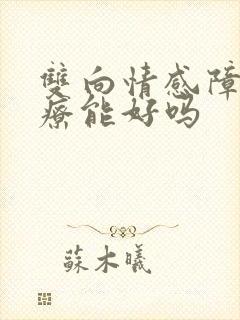 雙向情感障
療能好嗎
蘇木曦